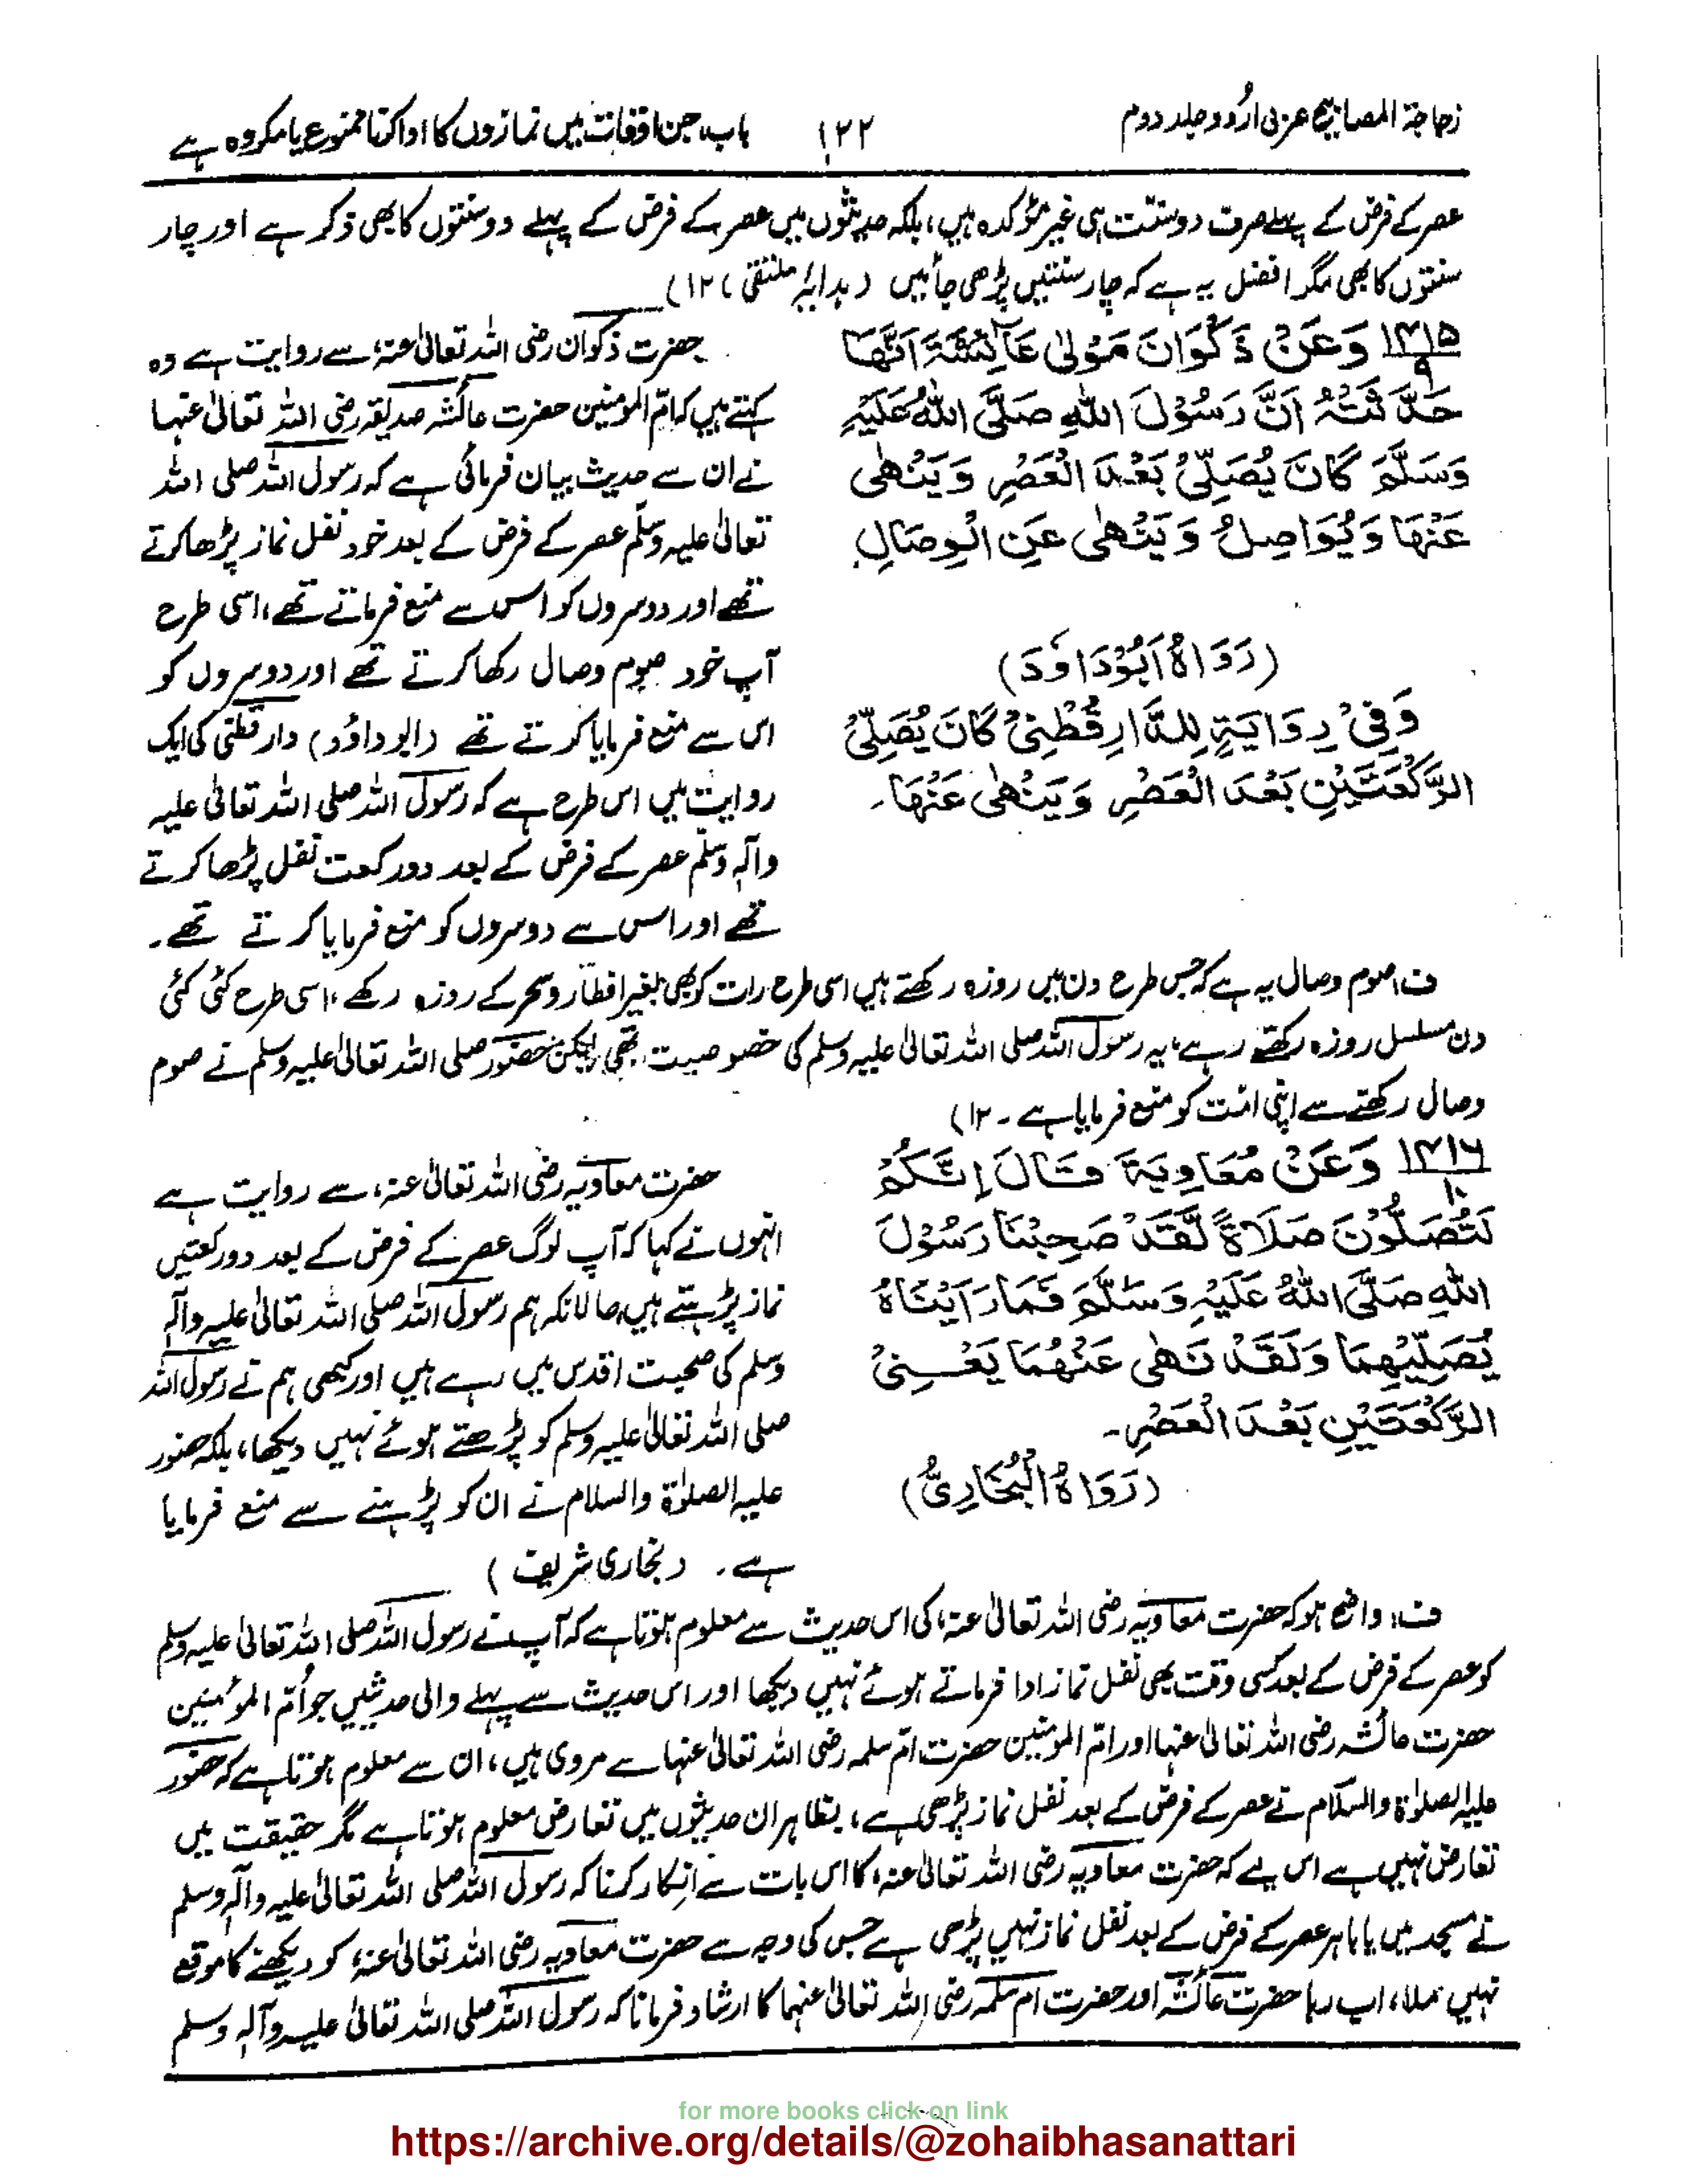 زجاجۃ المصابیح عربی اُردو جلد دوم
۱۲۲
باب، جن اوقات میں نمازوں کا ادا کرنا ممنوع یا مکروہ ہے
عصر کے فرض کے پہلے صرف دو سنّت ہی غیر مؤکدہ ہیں، بلکہ حدیثوں میں عصر کے فرض کے پہلے دو سنتوں کا بھی ذکر ہے اور چار
سنتوں کا بھی مگر افضل یہ ہے کہ چار سنتیں پڑھی جائیں (ہدایہ ملتقی ۱۲)
۱۴۱۵/۹ وَعَنْ ذَكْوَانَ مَوْلٰى عَآئِشَةَ اَنَّهَا
حَدَّثَتْهُ اَنَّ رَسُوْلَ اللهِ صَلَّى اللهُ عَلَيْهِ
وَسَلَّمَ كَانَ يُصَلِّىْ بَعْدَ الْعَصْرِ وَيَنْهٰى
عَنْهَا وَيُوَاصِلُ وَيَنْهٰى عَنِ الْوِصَالِ
(رَوَاهُ اَبُوْدَاوٗدَ)
وَفِىْ رِوَايَةٍ لِلدَّارِقُطْنِىْ كَانَ يُصَلِّىْ
الرَّكْعَتَيْنِ بَعْدَ الْعَصْرِ وَيَنْهٰى عَنْهَا۔
حضرت ذکوان رضی اللہ تعالیٰ عنہ، سے روایت ہے وہ
کہتے ہیں کہ امّ المومنین حضرت عائشہ صدیقہ رضی اللہ تعالیٰ عنہا
نے ان سے حدیث بیان فرمائی ہے کہ رسول اللہ صلی اللہ
تعالیٰ علیہ وسلّم عصر کے فرض کے بعد خود نفل نماز پڑھا کرتے
تھے اور دوسروں کو اس سے منع فرماتے تھے، اسی طرح
آپ خود صوم وصال رکھا کرتے تھے اور دوسروں کو
اس سے منع فرمایا کرتے تھے (ابو داؤد) دار قطنی کی ایک
روایت میں اس طرح ہے کہ رسول اللہ صلی اللہ تعالیٰ علیہ
وآلہٖ وسلّم عصر کے فرض کے بعد دو رکعت نفل پڑھا کرتے
تھے اور اس سے دوسروں کو منع فرمایا کرتے تھے۔
ف: صوم وصال یہ ہے کہ جس طرح دن میں روزہ رکھتے ہیں اسی طرح رات کو بھی بغیر افطار و سحر کے روزہ رکھے، اسی طرح کئی کئی
دن مسلسل روزہ رکھتے رہے، یہ رسول اللہ صلی اللہ تعالیٰ علیہ وسلم کی خصوصیت تھی لیکن حضور صلی اللہ تعالیٰ علیہ وسلم نے صوم
وصال رکھتے سے اپنی امّت کو منع فرمایا ہے ۔ ۱۲)
۱۴۱۶/۱۰ وَعَنْ مُعَاوِيَةَ قَالَ اِنَّكُمْ
لَتُصَلُّوْنَ صَلَاةً لَّقَدْ صَحِبْنَا رَسُوْلَ
اللهِ صَلَّى اللهُ عَلَيْهِ وَسَلَّمَ فَمَا رَاَيْنَاهُ
يُصَلِّيْهِمَا وَلَقَدْ نَهٰى عَنْهُمَا يَعْنِىْ
الرَّكْعَتَيْنِ بَعْدَ الْعَصْرِ۔
(رَوَاهُ الْبُخَارِىُّ)
حضرت معاویہ رضی اللہ تعالیٰ عنہ، سے روایت ہے
انہوں نے کہا کہ آپ لوگ عصر کے فرض کے بعد دو رکعتیں
نماز پڑہتے ہیں حالانکہ ہم رسول اللہ صلی اللہ تعالیٰ علیہ وآلہٖ
وسلم کی صحبت اقدس میں رہے ہیں اور کبھی ہم نے رسول اللہ
صلی اللہ تعالیٰ علیہ وسلم کو پڑھتے ہوئے نہیں دیکھا، بلکہ حضور
علیہ الصلوٰۃ والسلام نے ان کو پڑہنے سے منع فرمایا
ہے۔ (بخاری شریف)
ف: واضح ہو کہ حضرت معاویہ رضی اللہ تعالیٰ عنہ، کی اس حدیث سے معلوم ہوتا ہے کہ آپ نے رسول اللہ صلی اللہ تعالیٰ علیہ وسلم
کو عصر کے فرض کے بعد کسی وقت بھی نفل نماز ادا فرماتے ہوئے نہیں دیکھا اور اس حدیث سے پہلے والی حدیثیں جو اُمّ المومنین
حضرت عائشہ رضی اللہ تعالیٰ عنہا اور امّ المومنین حضرت امّ سلمہ رضی اللہ تعالیٰ عنہا سے مروی ہیں، ان سے معلوم ہوتا ہے کہ حضور
علیہ الصلوٰۃ والسّلام نے عصر کے فرض کے بعد نفل نماز پڑھی ہے، بظاہر ان حدیثوں میں تعارض معلوم ہوتا ہے مگر حقیقت میں
تعارض نہیں ہے اس لیے کہ حضرت معاویہ رضی اللہ تعالیٰ عنہ، کا اس بات سے انکار کرنا کہ رسول اللہ صلی اللہ تعالیٰ علیہ وآلہٖ وسلم
نے مسجد میں یا باہر عصر کے فرض کے بعد نفل نماز نہیں پڑھی ہے جس کی وجہ سے حضرت معاویہ رضی اللہ تعالیٰ عنہ، کو دیکھنے کا موقع
نہیں ملا، اب رہا حضرت عائشہ اور حضرت ام سلمہ رضی اللہ تعالیٰ عنہما کا ارشاد فرمانا کہ رسول اللہ صلی اللہ تعالیٰ علیہ وآلہٖ وسلم
for more books click on link
https://archive.org/details/@zohaibhasanattari